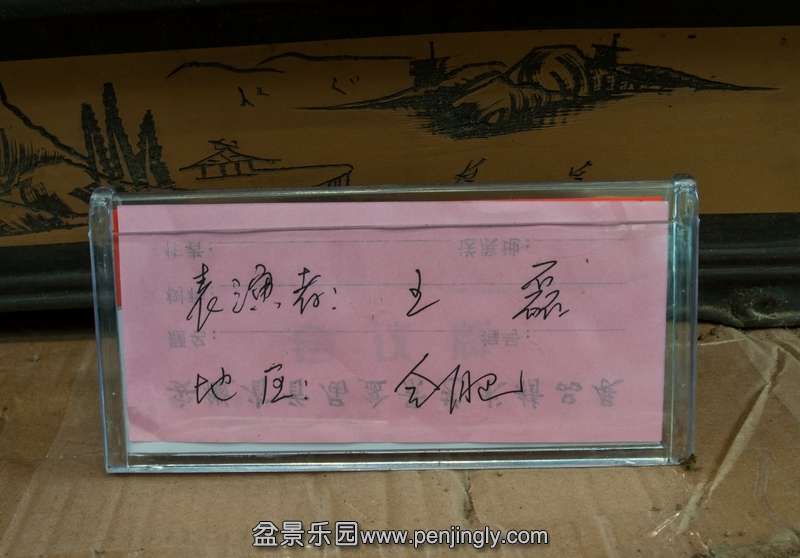 表演者： 王 磊
地区： 合肥
盆景乐园www.penjingly.com